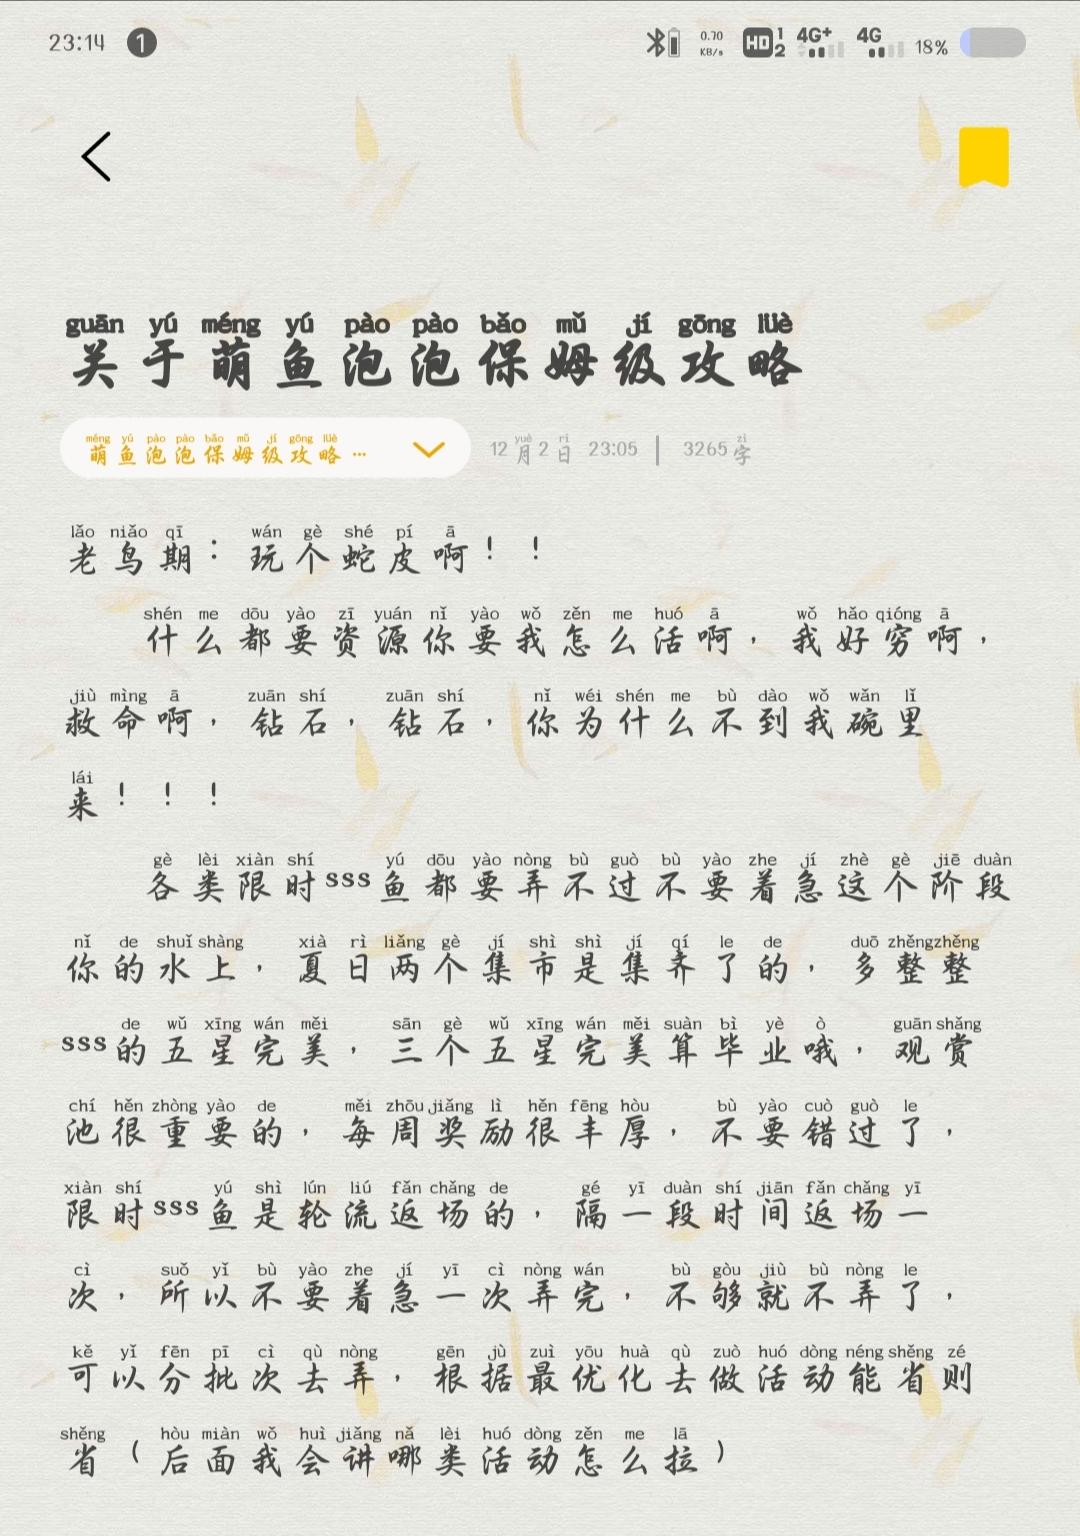 23:14 1 0.70 KB/s HD 1 2 4G+ 4G 18%
guān yú méng yú pào pào bǎo mǔ jí gōng lüè
关于萌鱼泡泡保姆级攻略
méng yú pào pào bǎo mǔ jí gōng lüè yuè rì zì
萌鱼泡泡保姆级攻略… 12月2日 23:05 | 3265字
lǎo niǎo qī wán gè shé pí ā
老鸟期：玩个蛇皮啊！！
shén me dōu yào zī yuán nǐ yào wǒ zěn me huó ā wǒ hǎo qióng ā
什么都要资源你要我怎么活啊，我好穷啊，
jiù mìng ā zuān shí zuān shí nǐ wéi shén me bù dào wǒ wǎn lǐ
救命啊，钻石，钻石，你为什么不到我碗里
lái
来！！！
gè lèi xiàn shí yú dōu yào nòng bù guò bù yào zhe jí zhè gè jiē duàn
各类限时sss鱼都要弄不过不要着急这个阶段
nǐ de shuǐ shàng xià rì liǎng gè jí shì shì jí qí le de duō zhěng zhěng
你的水上，夏日两个集市是集齐了的，多整整
de wǔ xīng wán měi sān gè wǔ xīng wán měi suàn bì yè ò guān shǎng
sss的五星完美，三个五星完美算毕业哦，观赏
chí hěn zhòng yào de měi zhōu jiǎng lì hěn fēng hòu bù yào cuò guò le
池很重要的，每周奖励很丰厚，不要错过了，
xiàn shí yú shì lún liú fǎn chǎng de gé yī duàn shí jiān fǎn chǎng yī
限时sss鱼是轮流返场的，隔一段时间返场一
cì suǒ yǐ bù yào zhe jí yī cì nòng wán bù gòu jiù bù nòng le
次，所以不要着急一次弄完，不够就不弄了，
kě yǐ fēn pī cì qù nòng gēn jù zuì yōu huà qù zuò huó dòng néng shěng zé
可以分批次去弄，根据最优化去做活动能省则
shěng hòu miàn wǒ huì jiǎng nǎ lèi huó dòng zěn me lā
省（后面我会讲哪类活动怎么拉）